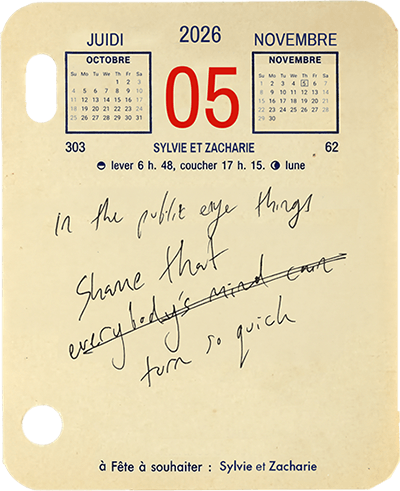 JUIDI 2026 NOVEMBRE
OCTOBRE
Su Mo Tu We Th Fr Sa
1 2 3
4 5 6 7 8 9 10
11 12 13 14 15 16 17
18 19 20 21 22 23 24
25 26 27 28 29 30 31
05
NOVEMBRE
Su Mo Tu We Th Fr Sa
1 2 3 4 5 6 7
8 9 10 11 12 13 14
15 16 17 18 19 20 21
22 23 24 25 26 27 28
29 30
303 SYLVIE ET ZACHARIE 62
lever 6 h. 48, coucher 17 h. 15. lune
in the public eye things
Shame that
everybody's mind can
turn so quick
à Fête à souhaiter : Sylvie et Zacharie